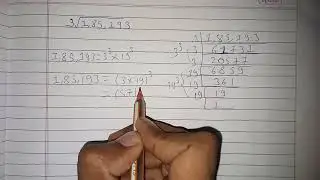 3√1,85,193
1,85,193 = 3³×19³
1,85,193 = (3×19)³
= (57)
3 1,85,193
3³ 3 61731
3 20577
19 6859
19³ 19 361
19 19
1